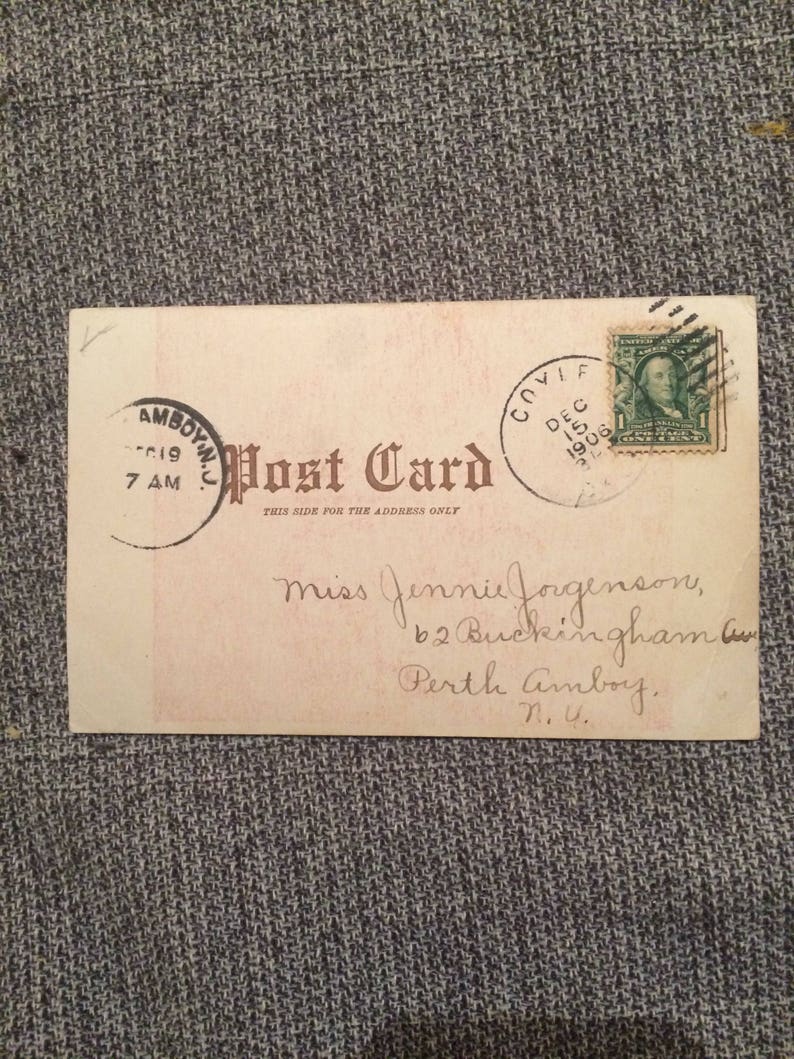 UNITED STATES OF
AMERICA
1 FRANKLIN 1
POSTAGE
ONE CENT
COYLE
DEC
15
1906
AMBOY, N.J.
19
7 AM
Post Card
THIS SIDE FOR THE ADDRESS ONLY
Miss Jennie Jorgenson,
62 Buckingham Ave
Perth Amboy,
N. Y.